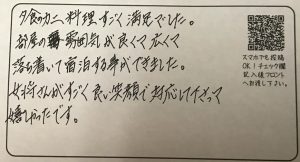 夕食のカニ料理すごく満足でした。
部屋の雰囲気が良くて広くて
落ち着いて宿泊する事ができました。
女将さんがすごく良い笑顔で対応して下さって
嬉しかったです。
スマホでも投稿
OK!チェック欄
記入後フロント
へお渡し下さい。